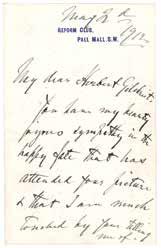 May 2d
1912
REFORM CLUB,
PALL MALL. S.W.
My dear Herbert Gilchrist,
You have my hearty
joyous sympathy in the
happy fate that has
attended your picture
& that I am much
touched by your telling
me of.